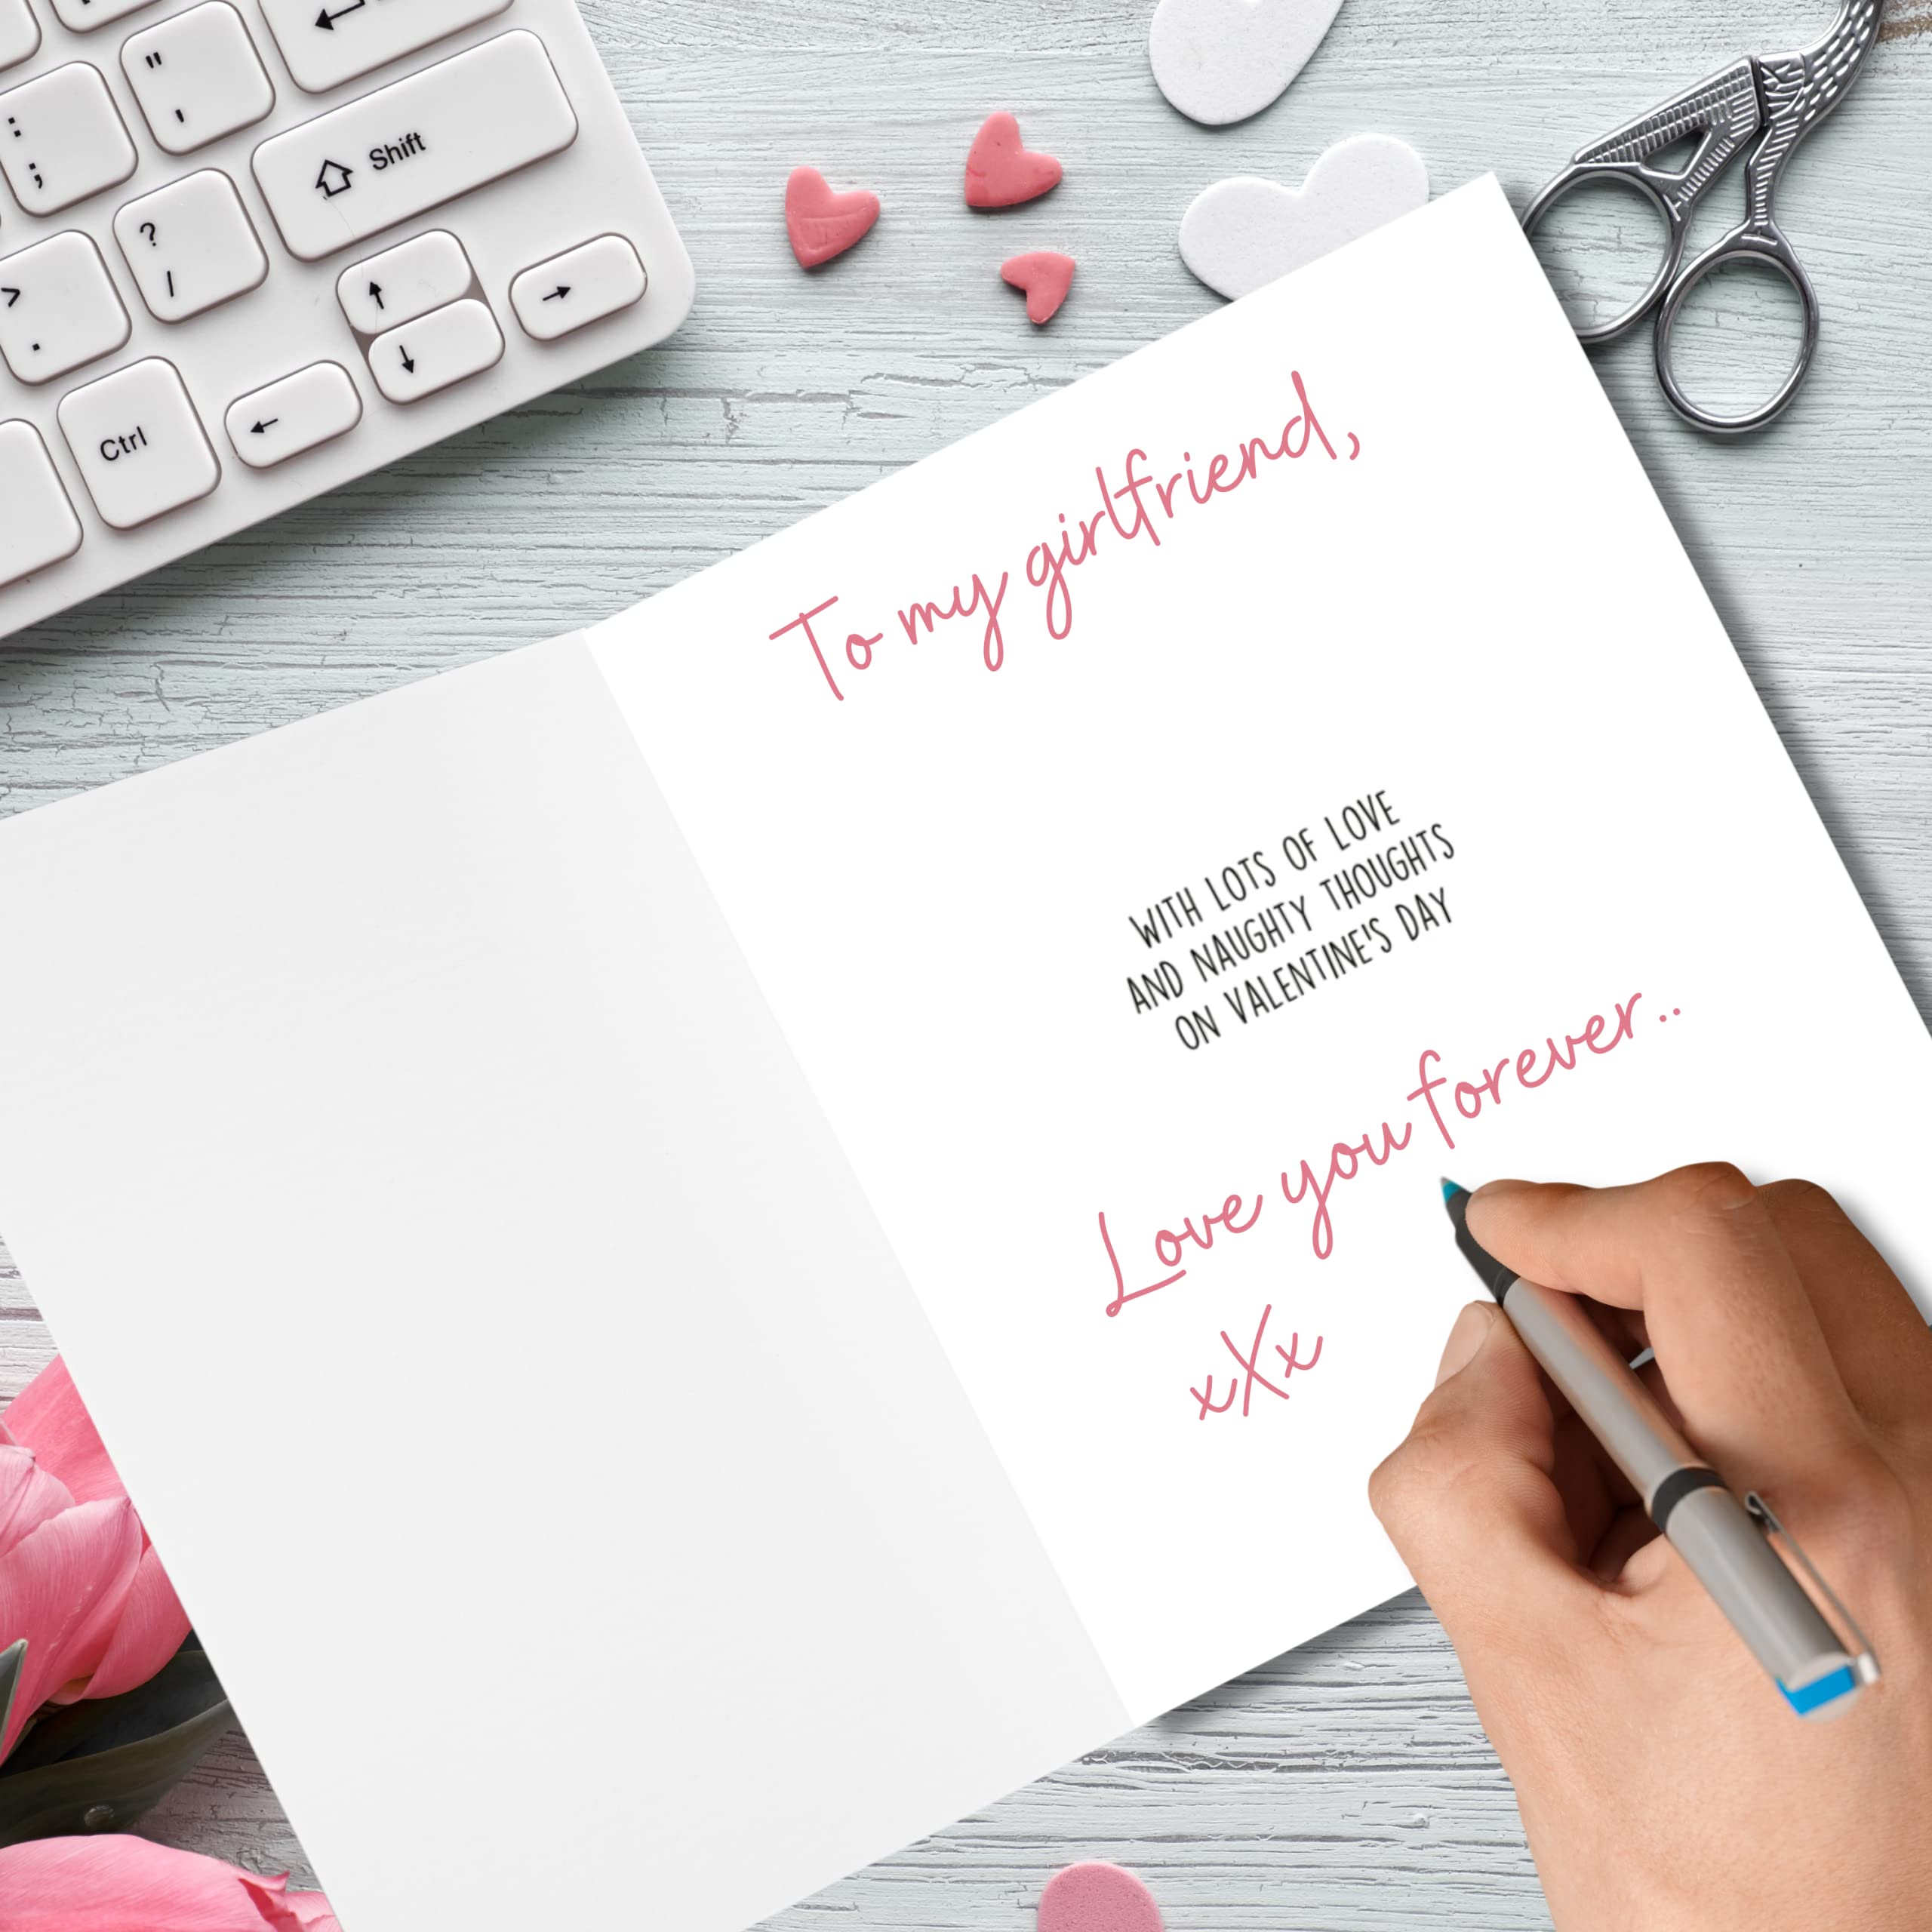 "
'
:
;
Shift
?
/
>
.
Ctrl
To my girlfriend,
WITH LOTS OF LOVE
AND NAUGHTY THOUGHTS
ON VALENTINE'S DAY
Love you forever..
xXx